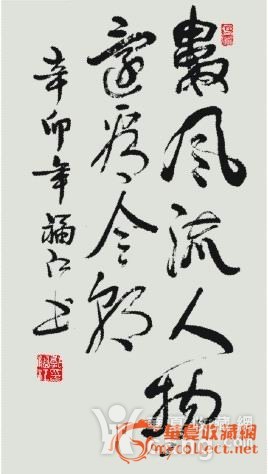 數風流人物
還看今朝
辛卯年福江书
華夏收藏网
mycollect.net